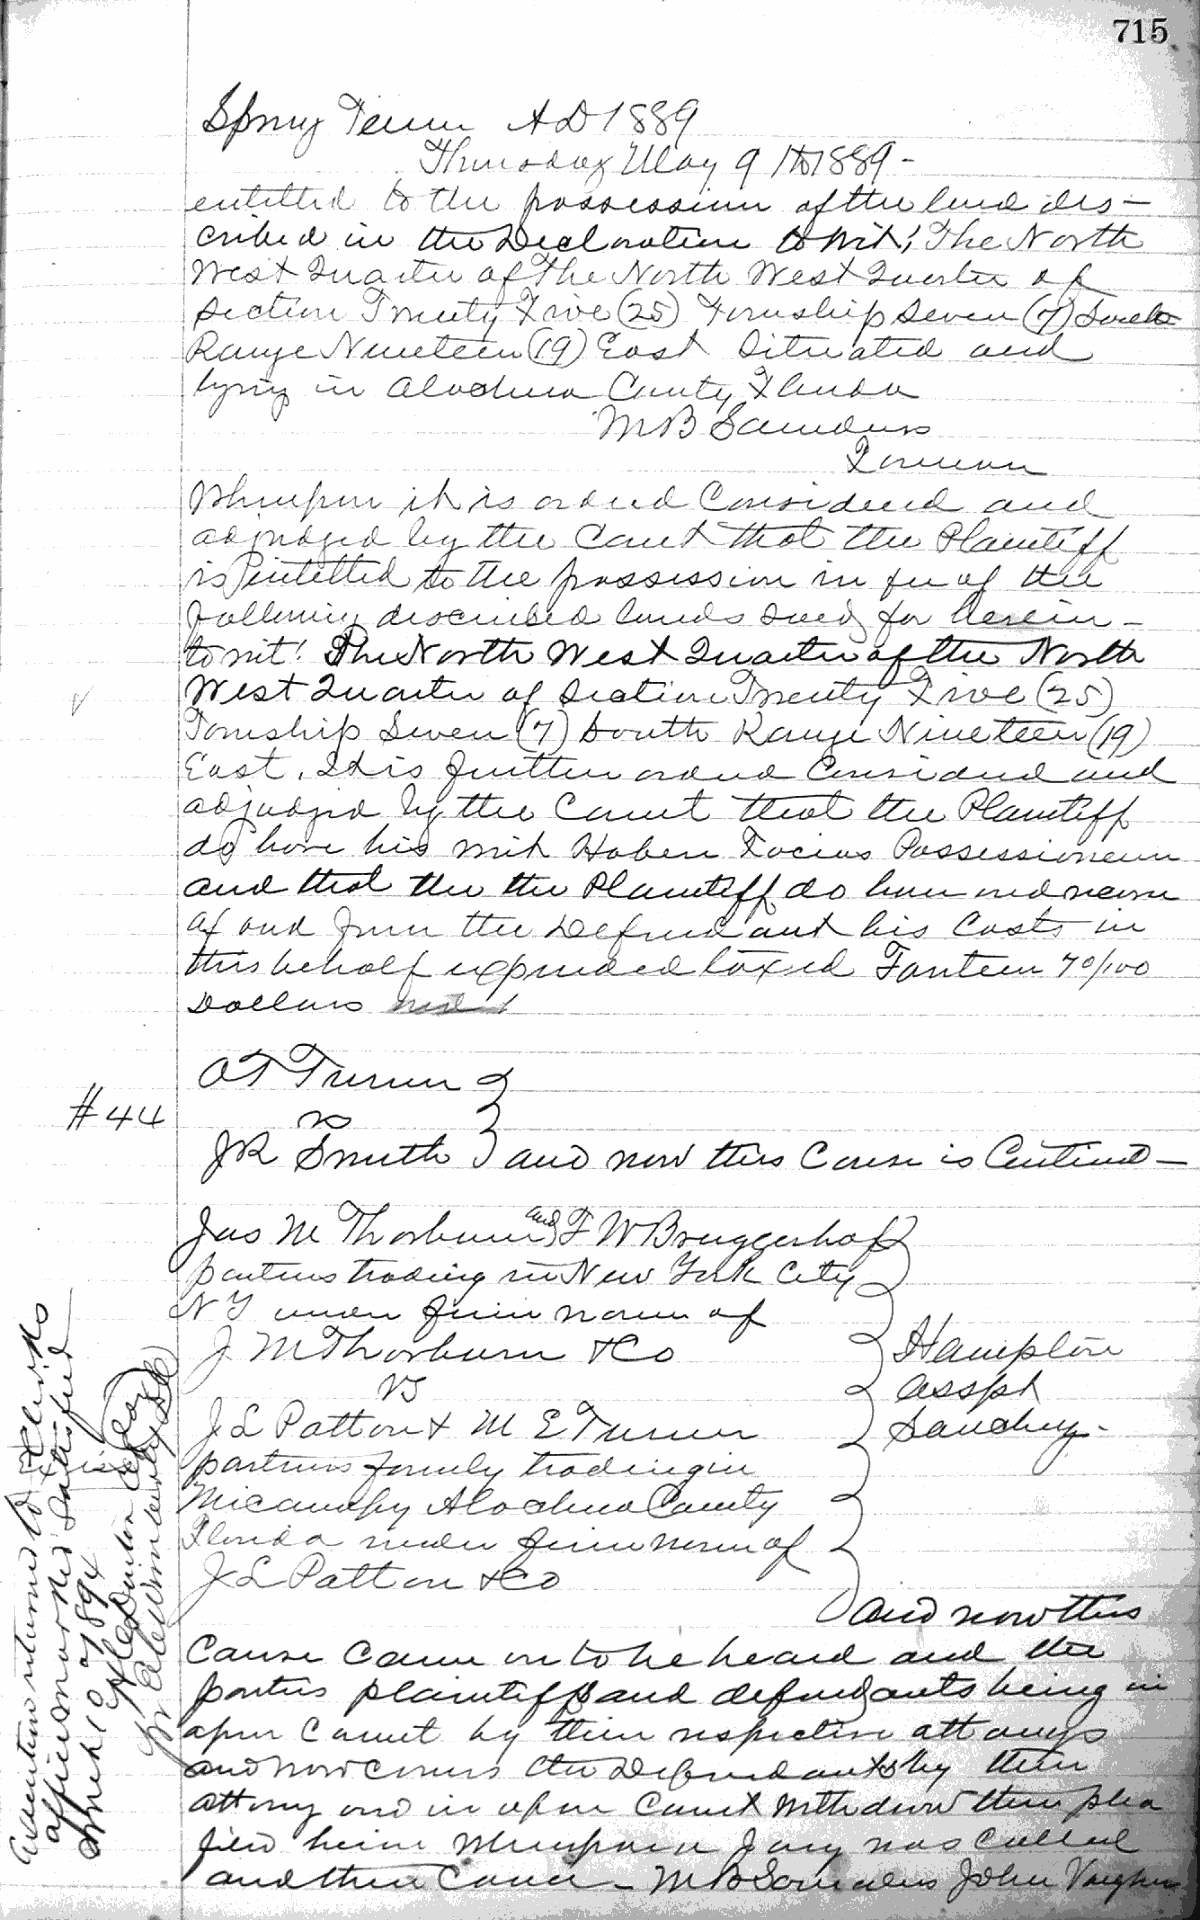 715
Spring Term AD 1889
Thursday May 9th 1889 -
entitled to the possession of the land des-
cribed in the Declaration to wit; The North
West Quarter of the North West Quarter of
Section Twenty Five (25) Township Seven (7) South
Range Nineteen (19) East Situated and
lying in Alachua County Florida
M B Saunders
Forman
Whereupon it is ordered Considered and
adjudged by the Court that the Plaintiff
is entitled to the possession in fee of the
following described lands sued for herein -
to wit! The North West Quarter of the North
West Quarter of Section Twenty Five (25)
Township Seven (7) South Range Nineteen (19)
East. It is further ordered Considered and
adjudged by the Court that the Plaintiff
do have his writ Haben Facias Possessionem
and that the the Plaintiff do have and recover
of and from the Defendant his Costs in
this behalf expended taxed Fourteen 70/100
Dollars
O T Turner
#44
vs
J R Smith and now this Cause is Continued -
Jas M Thorburn and F W Bruggerhof
partners trading in New York City
N Y under firm name of
J. M Thorburn & Co
Hampton
vs
asspt
J L Patton & M E Turner
Dauchey -
partners formerly trading in
Micanopy Alachua County
Florida under firm name of
J L Patton & Co
and now this
Cause Came on to be heard and the
parties plaintiffs and defendants being in
open Court by their respective attorneys
and now comes the Defendants by their
attorney and in open Court withdraw their plea
filed herein Whereupon a Jury was Called
and then Came - M B Saunders John Vaughn
Execution returned to Clerks
office marked Satisfied
March 10 1894
Clerk